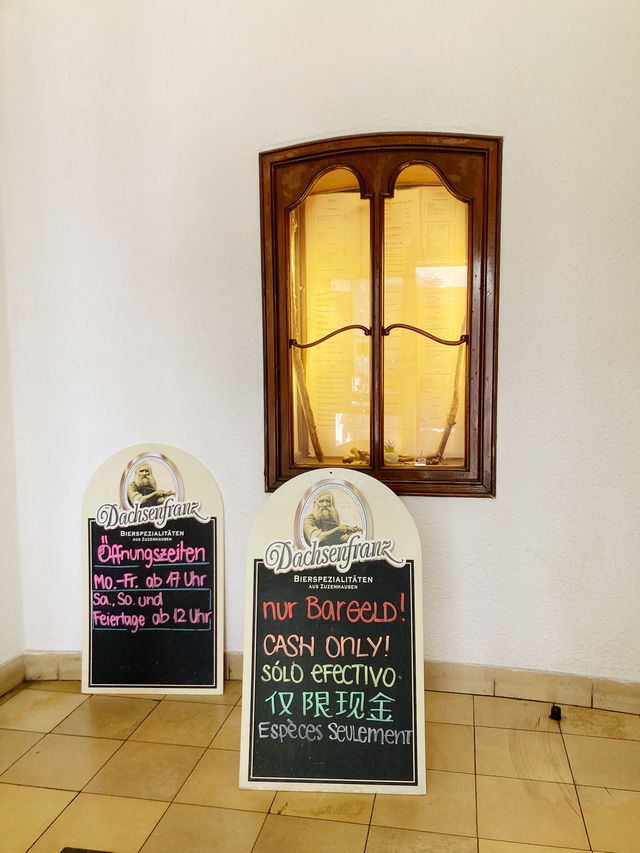 Dachsenfranz
BIERSPEZIALITÄTEN
AUS ZUZENHAUSEN
Öffnungszeiten
Mo.-Fr. ab 17 Uhr
Sa., So. und
Feiertage ab 12 Uhr
Dachsenfranz
BIERSPEZIALITÄTEN
AUS ZUZENHAUSEN
nur BarGELD!
CASH ONLY!
SÓLO EFECTIVO
仅限现金
Espèces Seulement